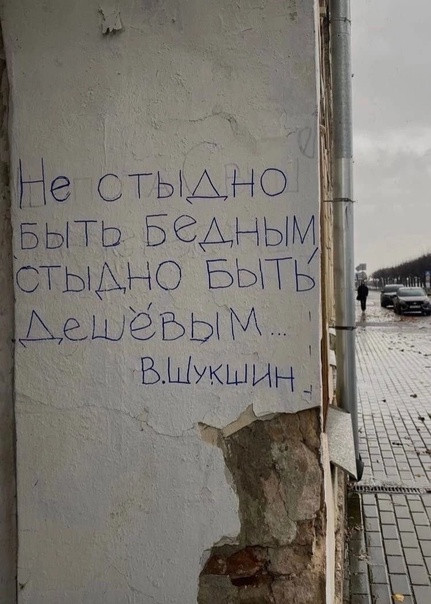 Не стыдно
быть бедным
стыдно быть
дешёвым...
В.Шукшин